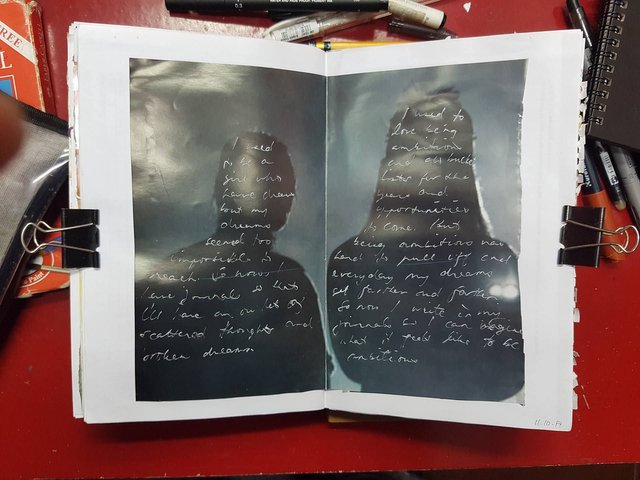 I used
to be a
girl who
have dreams
but my
dreams
seemed too
impossible to
reach. So now I
have journals so that
I have an outlet of
scattered thoughts and
broken dreams
I used to
love being
ambitious
and
for the
years and
opportunities
to come. But
being ambitious now
hard to pull off and
everyday my dreams
get farther and farther.
So now I write in my
journals so I can
what it feels like to be
ambitious
11-10-19
0.3